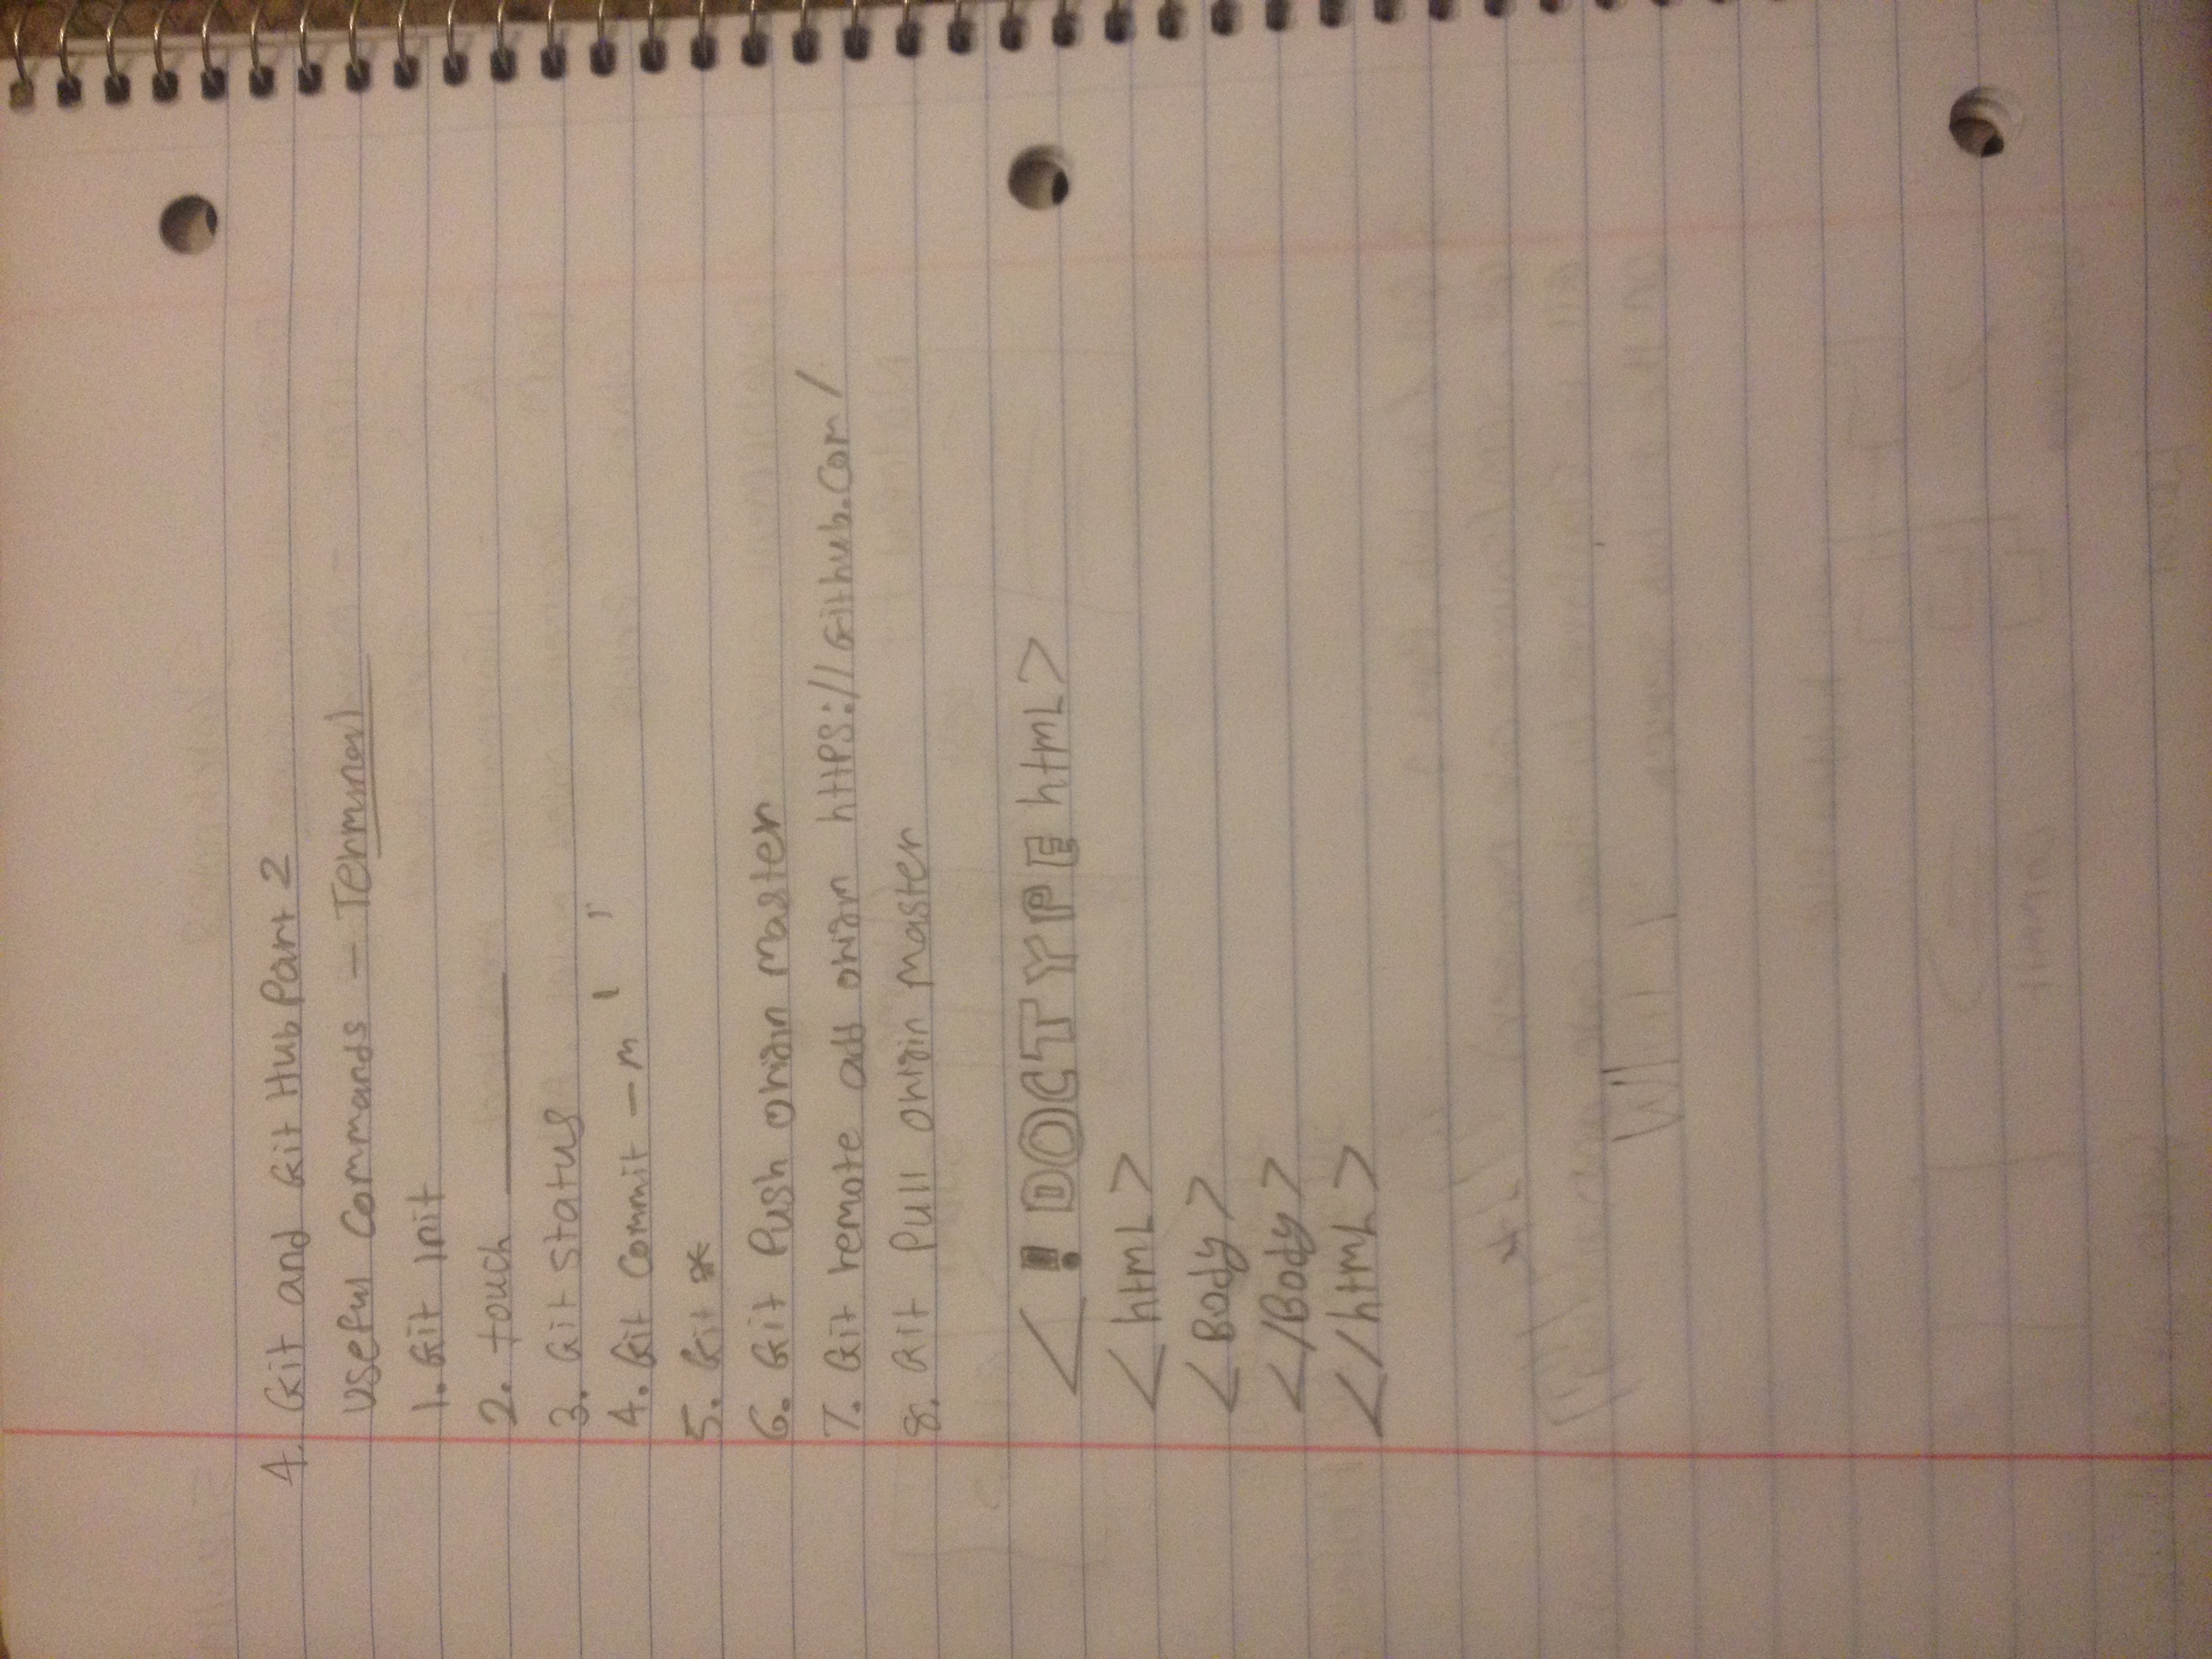 4. Git and GitHub Part 2
Useful Commands - Terminal
1. Git Init
2. touch ________
3. Git Status
4. Git Commit -m ' '
5. Git *
6. Git Push origin Master
7. Git remote add origin https://Github.Com/
8. Git Pull origin Master
<!DOCTYPE html>
<html>
<Body>
</Body>
</html>